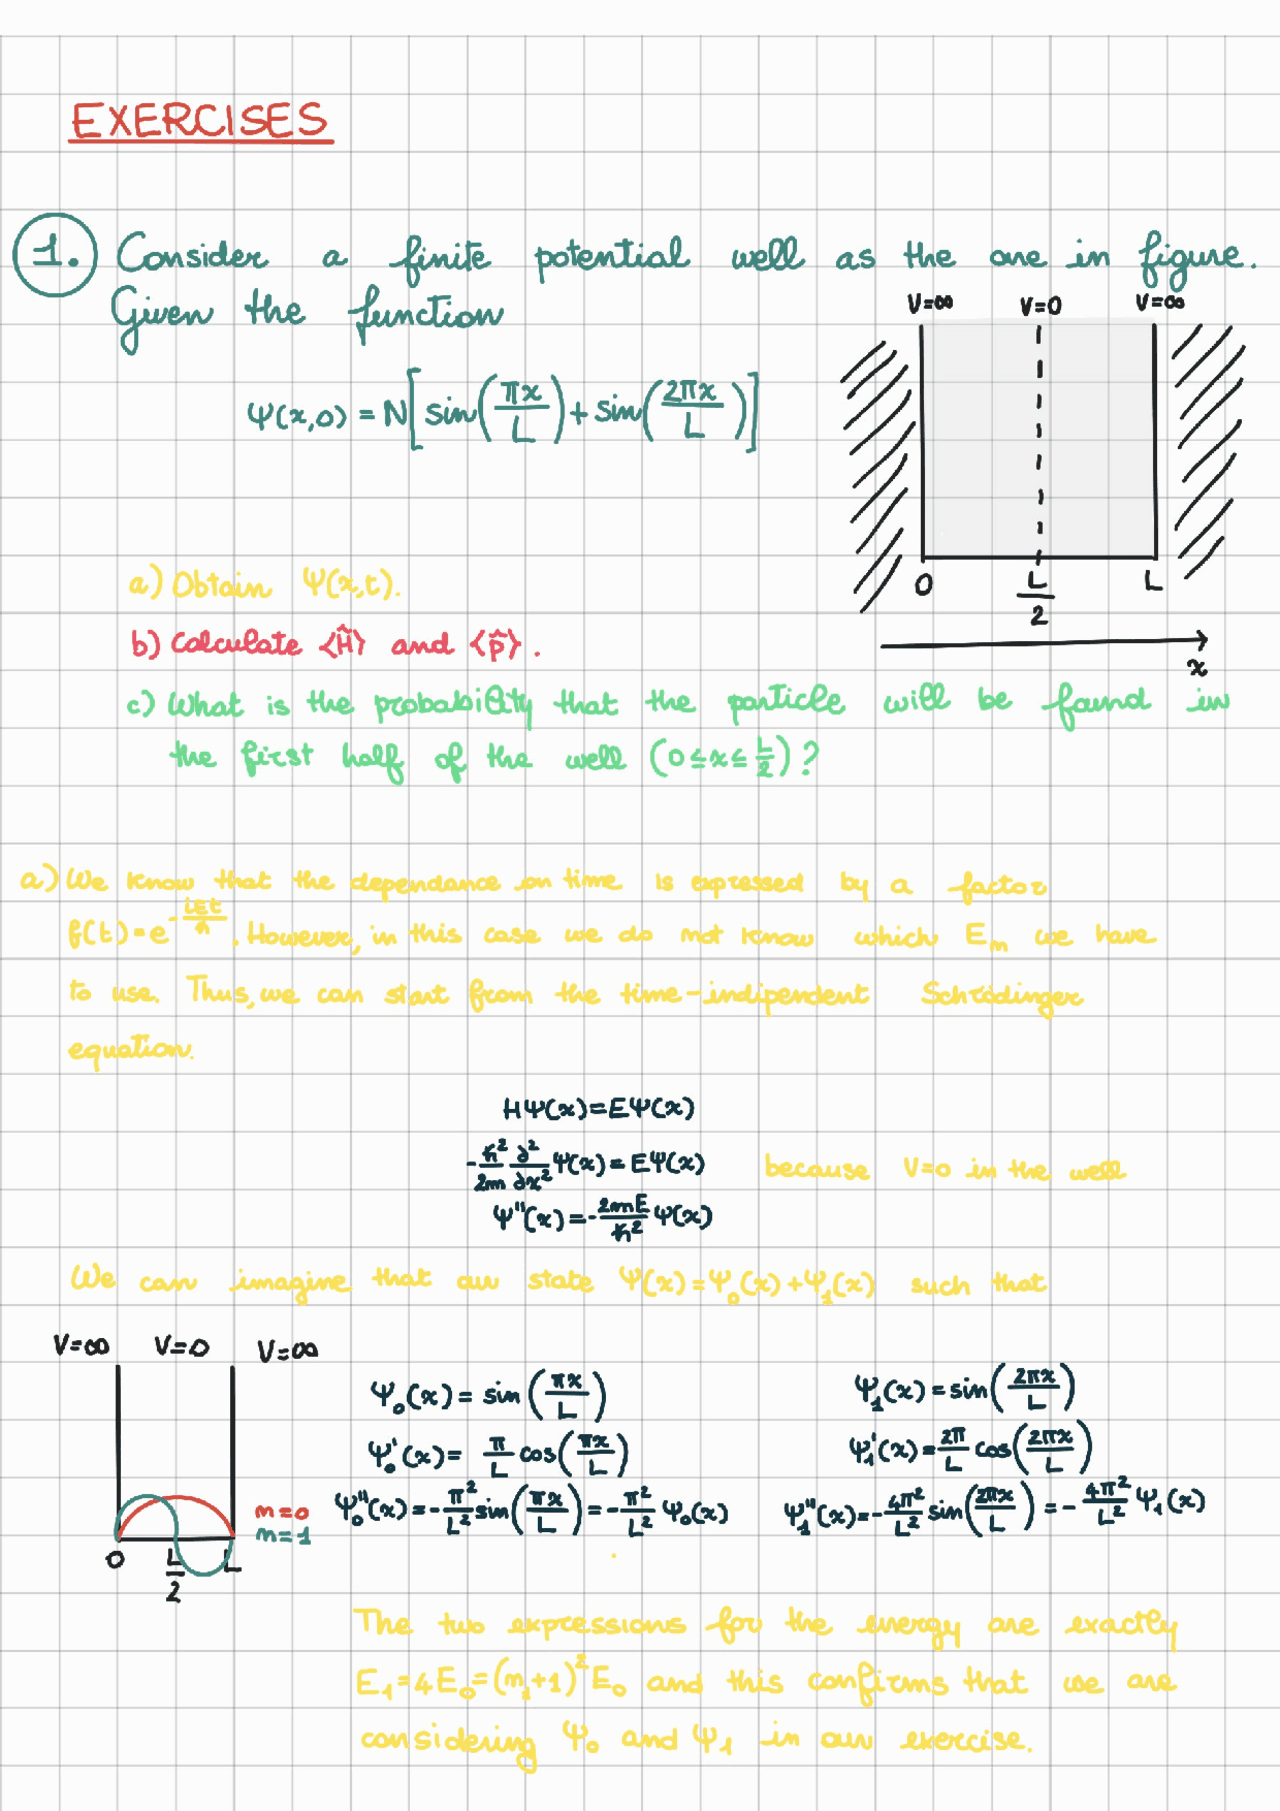 EXERCISES
1. Consider a finite potential well as the one in figure.
Given the function
V=∞ V=0 V=∞
Ψ(x,0) = N[sin(πx/L)+sin(2πx/L)]
0 L/2 L
x
a) Obtain Ψ(x,t).
b) Calculate <Ĥ> and <p̂>.
c) What is the probability that the particle will be found in
the first half of the well (0≤x≤L/2)?
a) We know that the dependance on time is expressed by a factor
f(t)=e^(-iEt/ħ). However, in this case we do not know which Eₙ we have
to use. Thus, we can start from the time-indipendent Schrödinger
equation.
HΨ(x)=EΨ(x)
-ħ²/2m ∂²/∂x² Ψ(x)=EΨ(x) because V=0 in the well
Ψ''(x)=-2mE/ħ² Ψ(x)
We can imagine that our state Ψ(x)=Ψ₀(x)+Ψ₁(x) such that
V=∞ V=0 V=∞
Ψ₀(x)= sin(πx/L) Ψ₁(x)=sin(2πx/L)
Ψ₀'(x)= π/L cos(πx/L) Ψ₁'(x)=2π/L cos(2πx/L)
Ψ₀''(x)=-π²/L² sin(πx/L)=-π²/L² Ψ₀(x) Ψ₁''(x)=-4π²/L² sin(2πx/L)=-4π²/L² Ψ₁(x)
n=0
n=1
0 L/2 L
The two expressions for the energy are exactly
E₁=4E₀=(n₁+1)²E₀ and this confirms that we are
considering Ψ₀ and Ψ₁ in our exercise.